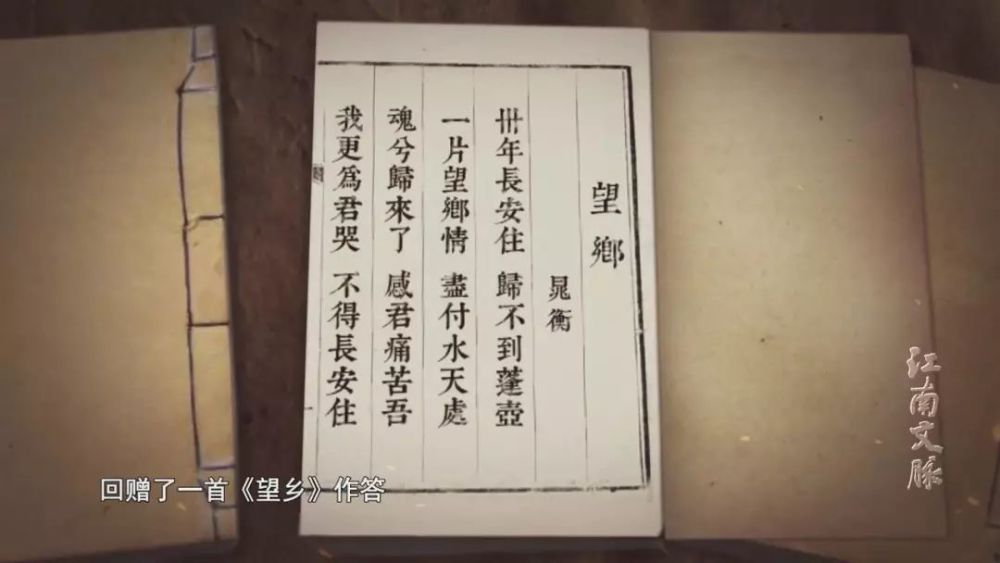 望鄉
晁衡
卅年長安住 歸不到蓬壺
一片望鄉情 盡付水天處
魂兮歸來了 感君痛苦吾
我更爲君哭 不得長安住
江南文脉
回赠了一首《望乡》作答